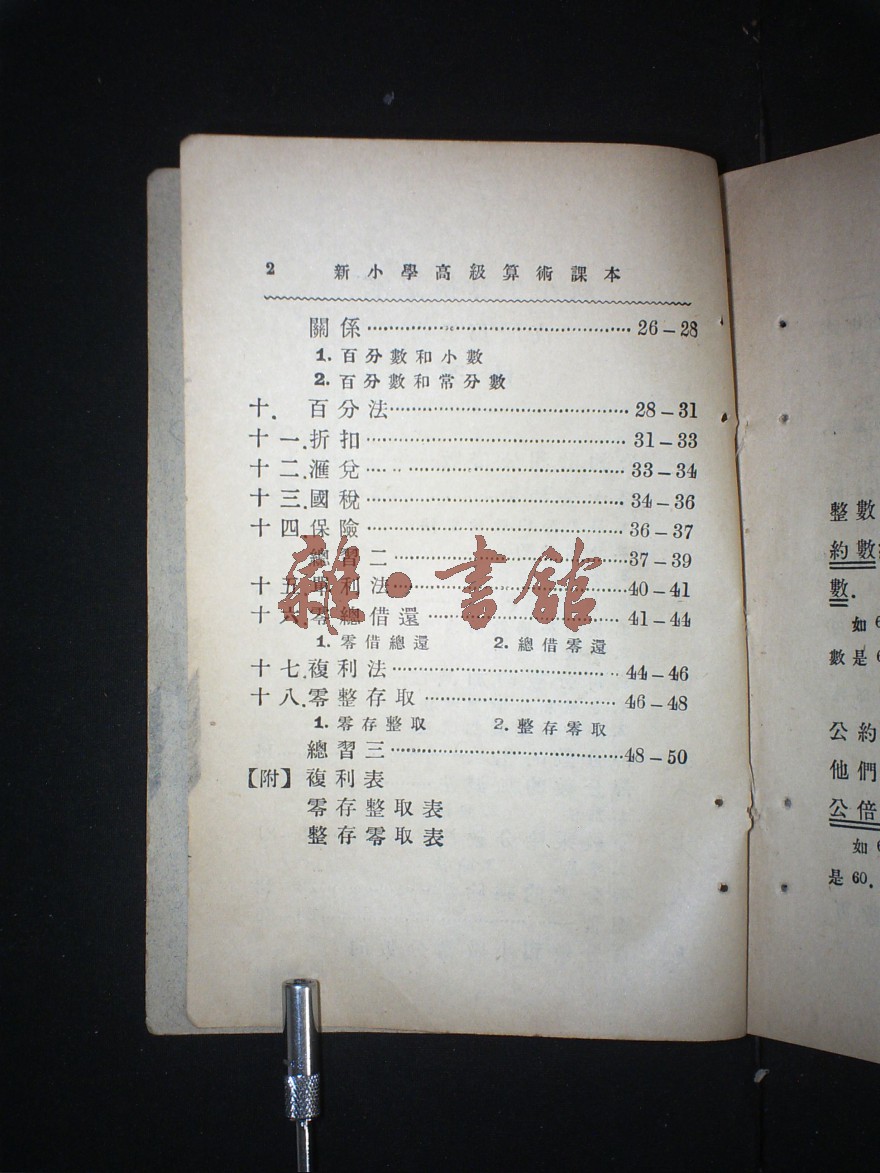 2 新小學高級算術課本
關係……26–28
1. 百分數和小數
2. 百分數和常分數
十. 百分法……28–31
十一. 折扣……31–33
十二. 滙兌……33–34
十三. 國稅……34–36
十四 保險……36–37
總習二……37–39
十五 單利法……40–41
十六. 零總借還……41–44
1. 零借總還 2. 總借零還
十七. 複利法……44–46
十八. 零整存取……46–48
1. 零存整取 2. 整存零取
總習三……48–50
【附】複利表
零存整取表
整存零取表
雜·書館
整數
約數
數.
如6
數是6
公約
他們
公倍
如6
是60.